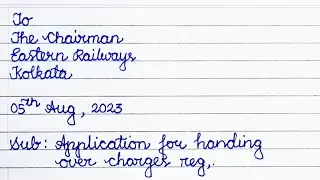 To
The Chairman
Eastern Railways
Kolkata
05th Aug, 2023
Sub: Application for handing
over charges reg,.